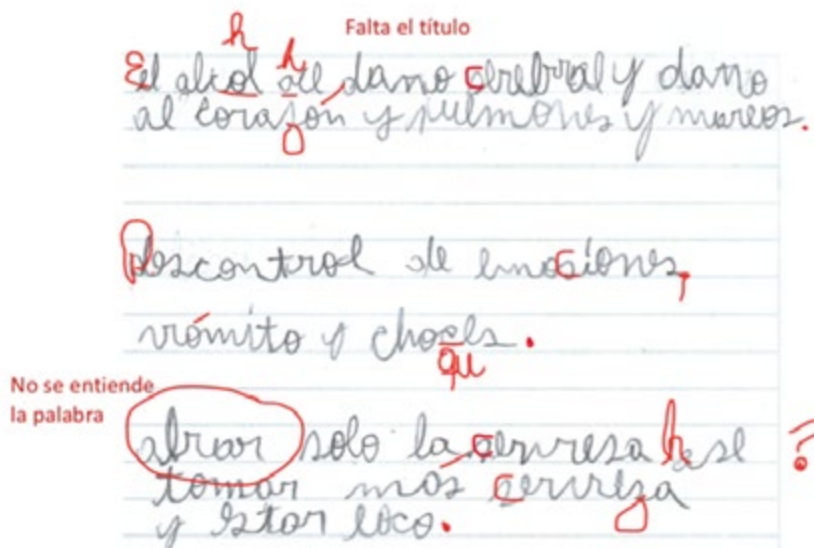 Falta el título
h h
El alcol daño cerebral y daño
al corazón y pulmones y mareos.
Descontrol de emociones,
vómito y choces.
qu
No se entiende
la palabra
solo la hase ?
tomar más cerveza
y estar loco.